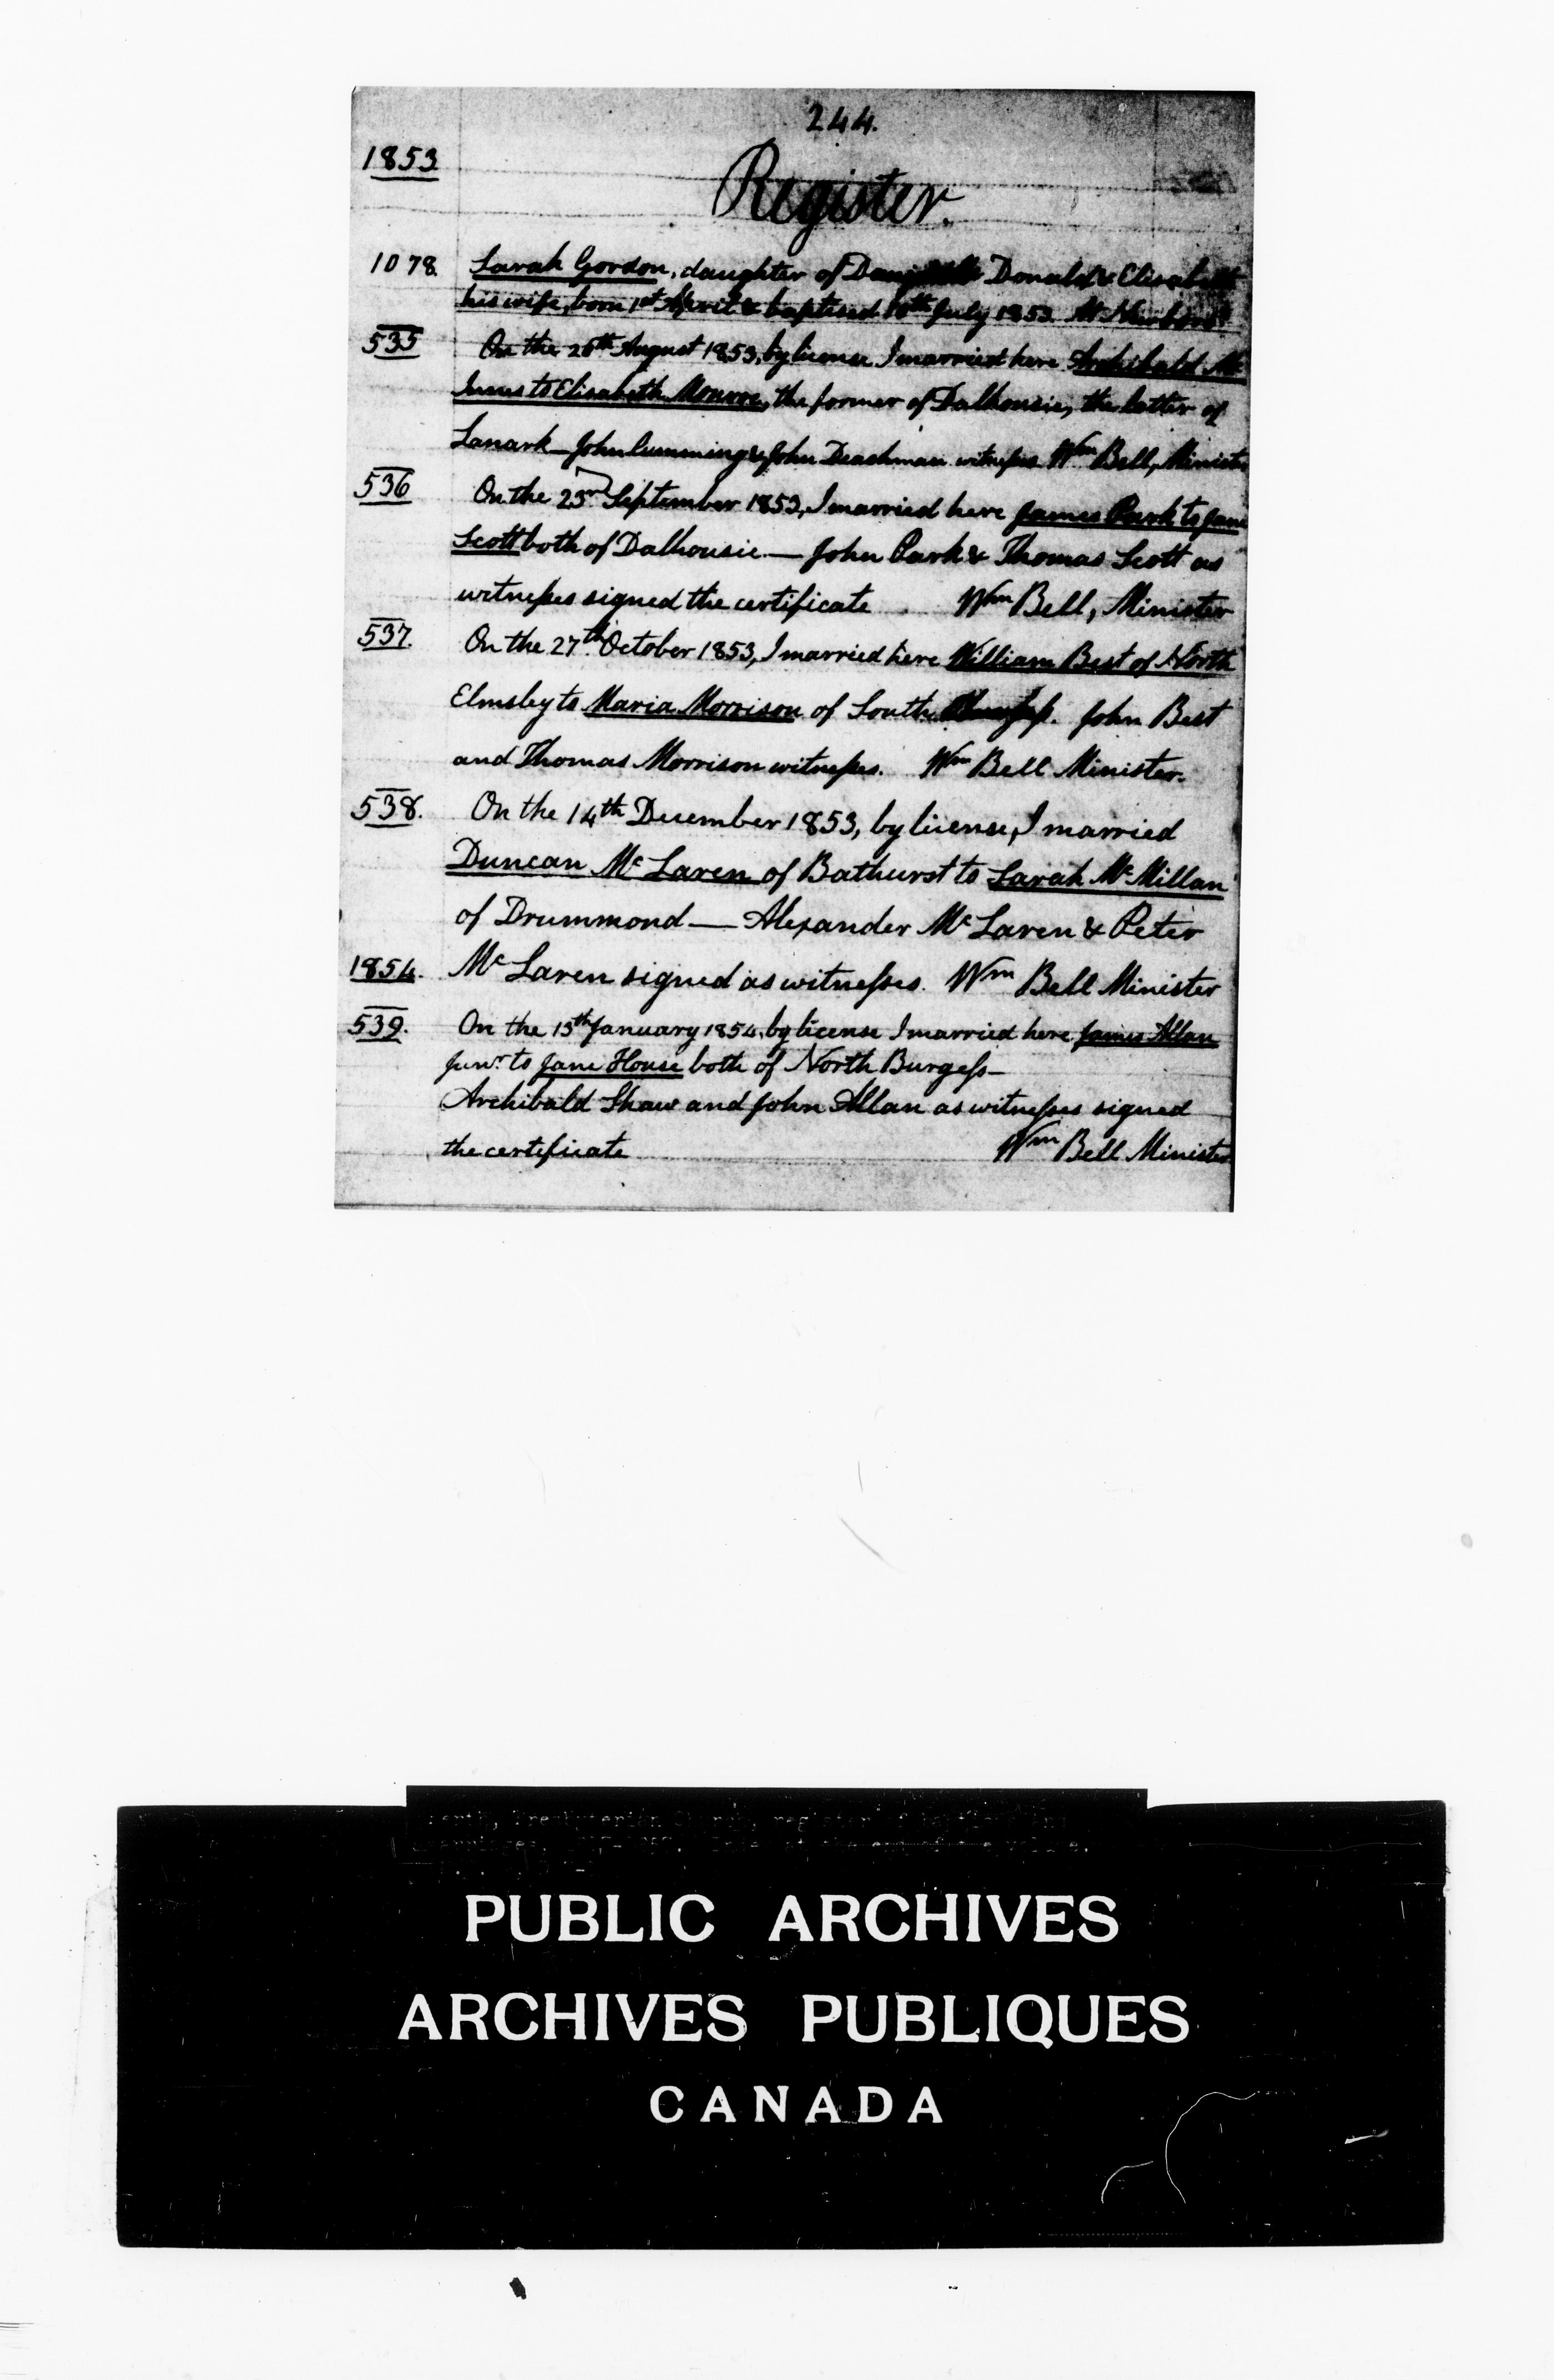 244.
1853
Register.
1078. Sarah Gordon, daughter of Donald & Elisabeth
his wife, born 1st April & baptised 10th July 1853.
535 On the 26th August 1853, by license I married here Archibald Mc
Innes to Elisabeth Monroe, the former of Dalhousie, the latter of
Lanark — John Cumming & John Deachman witnesses Wm Bell, Minister
536 On the 23rd September 1853, I married here James Park to Jane
Scott both of Dalhousie — John Park & Thomas Scott as
witnesses signed the certificate Wm Bell, Minister
537. On the 27th October 1853, I married here William Best of North
Elmsley to Maria Morrison of South. John Best
and Thomas Morrison witnesses. Wm Bell Minister.
538. On the 14th December 1853, by license, I married
Duncan Mc Laren of Bathurst to Sarah Mc Millan
of Drummond — Alexander Mc Laren & Peter
1854. Mc Laren signed as witnesses. Wm Bell Minister
539. On the 13th January 1854, by license I married here James Allan
Junr. to Jane House both of North Burgess —
Archibald Shaw and John Allan as witnesses signed
the certificate Wm Bell Minister
PUBLIC ARCHIVES
ARCHIVES PUBLIQUES
CANADA